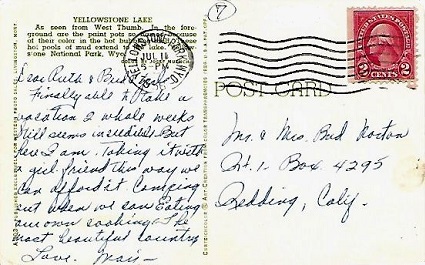 YELLOWSTONE LAKE
As seen from West Thumb. In the fore-
ground are the paint pots so
because
of their color in the hot
hot pools of mud extend
lake.
National Park, Wyo.
7
JUL 11
PM
UNITED STATES POSTAGE
2 CENTS 2
POST CARD
Dear Ruth & Bud,
Finally able to take a
vacation 2 whole weeks
Still seems incredible. But
here I am. Taking it with
a girl friend this way we
can afford it Camping
out when we can Eating
our own cooking. The
most beautiful country
Love.
Mr. & Mrs. Bud Norton
Rt. 1. Box 4295
Redding, Calif.